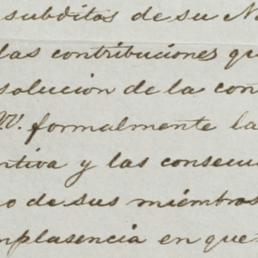 subditos de su
las contribuciones
solucion de la con
VV. formalmente la
ntiva y las consecu
o de sus miembros
mplasencia en que